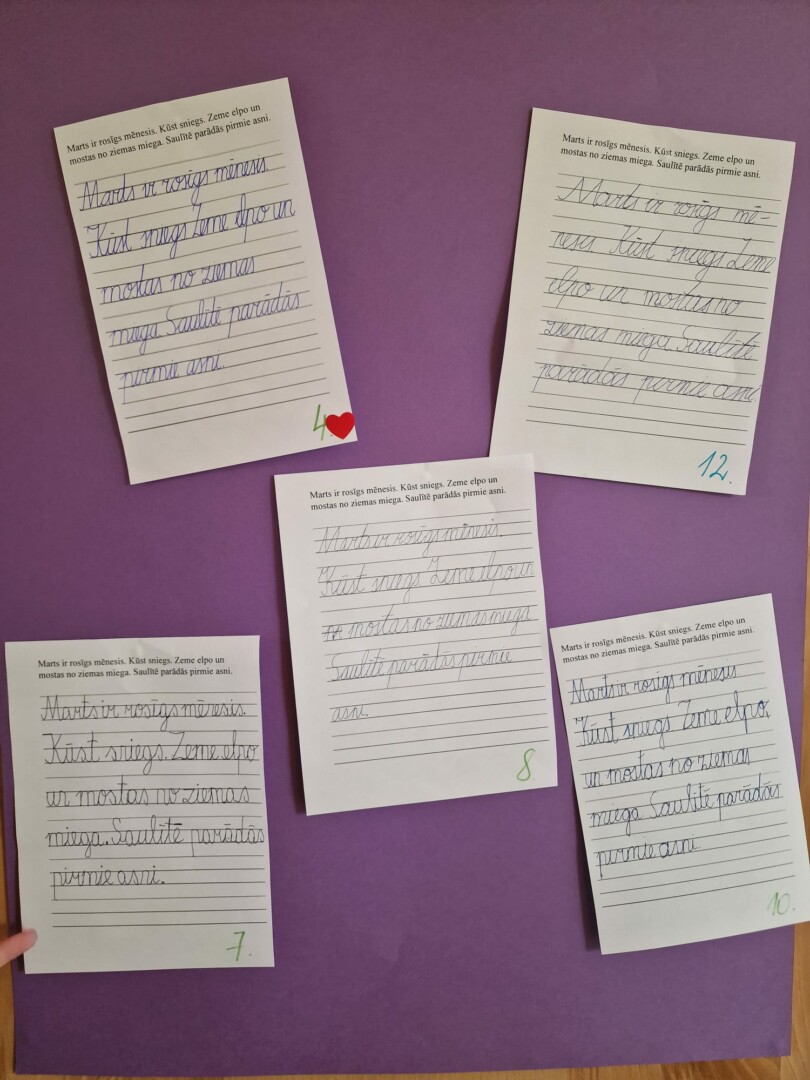 Marts ir rosīgs mēnesis. Kūst sniegs. Zeme elpo un
mostas no ziemas miega. Saulītē parādās pirmie asni.
Marts ir rosīgs mēnesis.
Kūst sniegs. Zeme elpo un
mostas no ziemas
miega. Saulītē parādās
pirmie asni.
4.
Marts ir rosīgs mēnesis. Kūst sniegs. Zeme elpo un
mostas no ziemas miega. Saulītē parādās pirmie asni.
Marts ir rosīgs mē-
nesis Kūst sniegs Zeme
elpo un mostas no
ziemas miega. Saulītē
parādās pirmie asni
12.
Marts ir rosīgs mēnesis. Kūst sniegs. Zeme elpo un
mostas no ziemas miega. Saulītē parādās pirmie asni.
Marts ir rosīgs mēnesis.
Kūst sniegs. Zeme elpo un
mostas no ziemas miega
Saulītē parādās pirmie
asni.
8.
Marts ir rosīgs mēnesis. Kūst sniegs. Zeme elpo un
mostas no ziemas miega. Saulītē parādās pirmie asni.
Marts ir rosīgs mēnesis.
Kūst sniegs. Zeme elpo
un mostas no ziemas
miega. Saulītē parādās
pirmie asni.
7.
Marts ir rosīgs mēnesis. Kūst sniegs. Zeme elpo un
mostas no ziemas miega. Saulītē parādās pirmie asni.
Marts ir rosīgs mēnesis
Kūst sniegs Zeme elpo,
un mostas no ziemas
miega Saulītē parādās
pirmie asni
10.